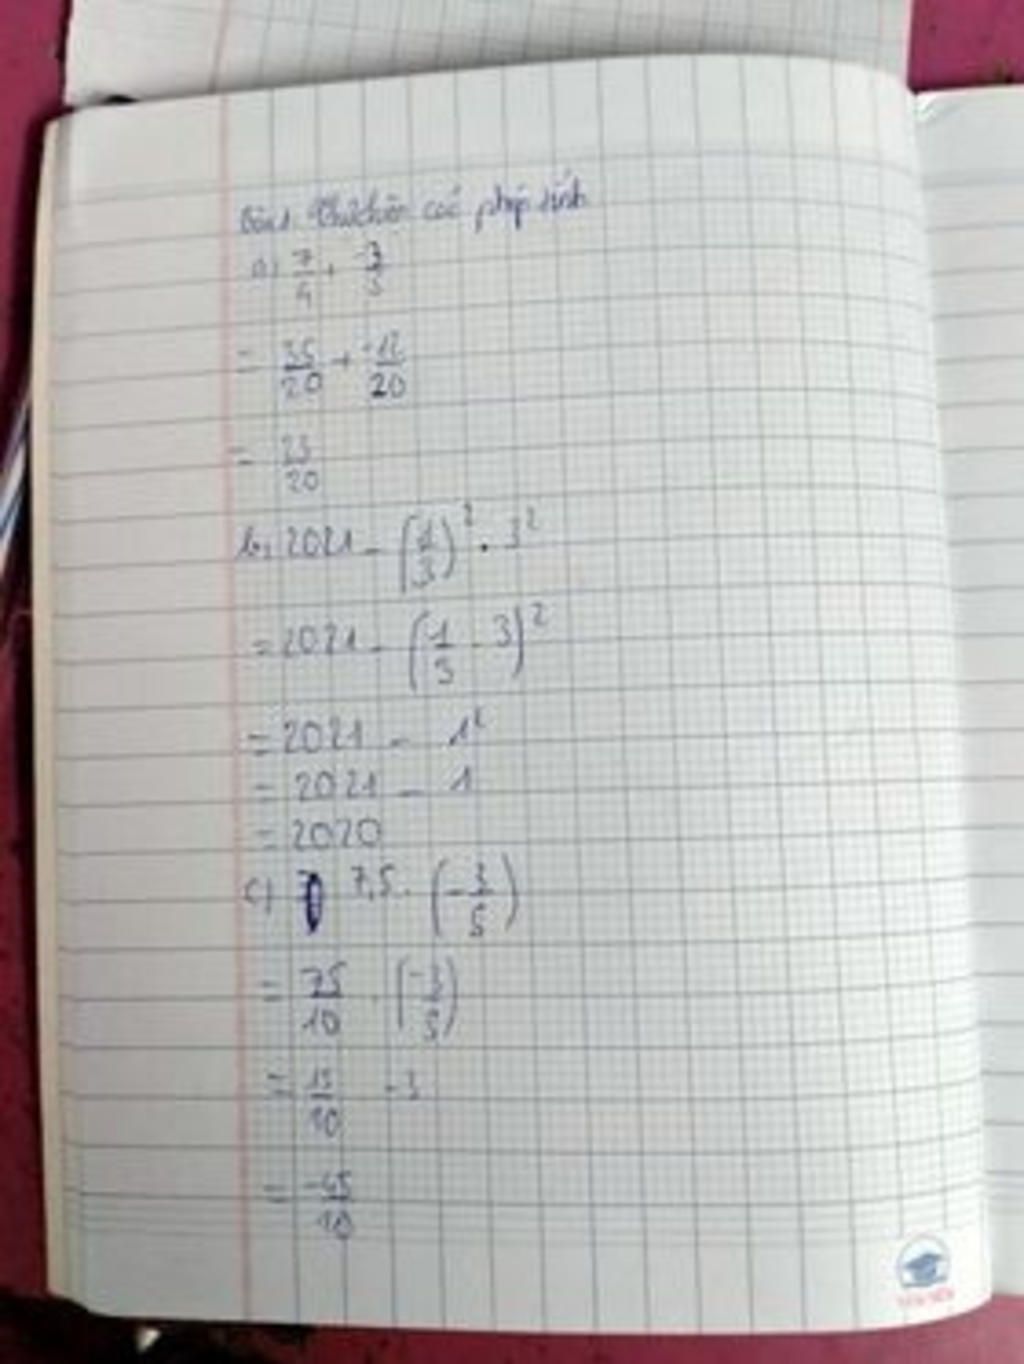 Bài 1. Thực hiện các phép tính
a) 7/4 + -3/5
= 35/20 + -12/20
= 23/20
b, 2021 - (1/3)² . 3²
= 2021 - (1/3 . 3)²
= 2021 - 1²
= 2021 - 1
= 2020
c) 7,5 . (-3/5)
= 75/10 . (-3/5)
= 15/10 . -3
= -45/10